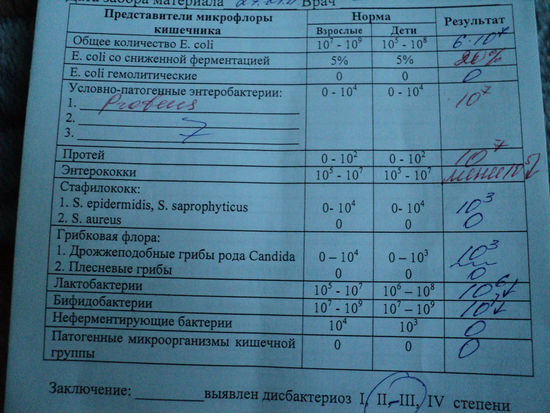 Дата забора материала Врач
Представители микрофлоры кишечника Норма Результат
Взрослые Дети
Общее количество E. coli 10⁷ - 10⁹ 10⁵ - 10⁸ 6·10⁷
E. coli со сниженной ферментацией 5% 5%
E. coli гемолитические 0 0 0
Условно-патогенные энтеробактерии: 0 - 10⁴ 0 - 10⁴ 10⁷
1. Proteus
2.
3.
Протей 0 - 10² 0 - 10² 10⁷
Энтерококки 10⁵ - 10⁷ 10⁵ - 10⁷ менее 10⁵↓
Стафилококк:
1. S. epidermidis, S. saprophyticus 0- 10⁴ 0- 10⁴ 10³
2. S. aureus 0 0 0
Грибковая флора:
1. Дрожжеподобные грибы рода Candida 0 – 10⁴ 0 – 10³ 10³
2. Плесневые грибы 0 0 0
Лактобактерии 10⁵ - 10⁷ 10⁶ – 10⁸ 10⁶↓
Бифидобактерии 10⁷ - 10⁹ 10⁷ – 10⁹ 10⁷↓
Неферментирующие бактерии 10⁴ 10³ 0
Патогенные микроорганизмы кишечной 0 0 0
группы
Заключение: ________выявлен дисбактериоз I, II, III, IV степени